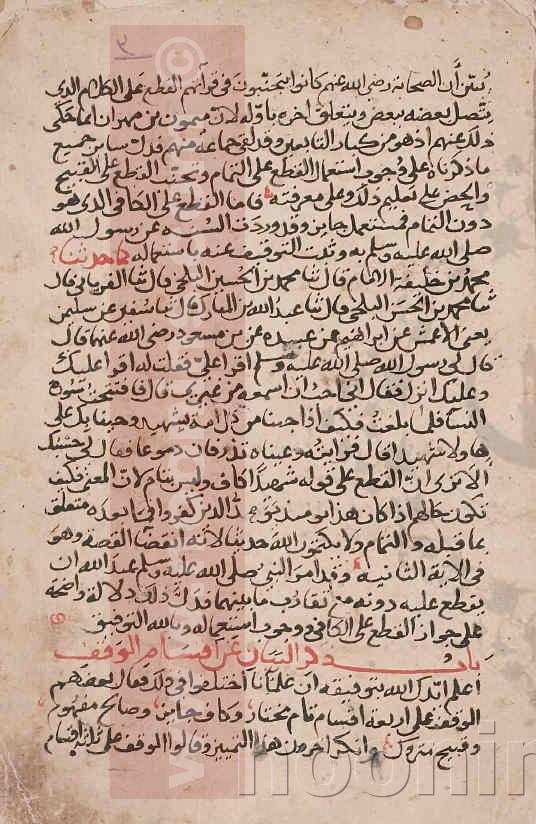 ٢
يتبين أن الصحابة رضى الله عنهم كانوا يتجنبون فى قرآتهم القطع على الكلام الذى
يتصل بعضه ببعض ويتعلق آخره باوله لان ميمون بن مهران انما حكى
ذلك عنهم اذ هو من كبار التابعين وقد لقى جماعة منهم فدل ساير جميع
ما ذكرناه على وجوب استعمال القطع على التمام وتجنب القطع على القبيح
والحض على تعليم ذلك وعلى معرفته فاما القطع على الكافى الذى هو
دون التمام فمستعمل جايز وقد وردت السنة عن رسول الله
صلى الله عليه وسلم به وثبت التوقيف عنه باستعماله كما حدثنا
محمد بن خليفة الامام قال ثنا محمد بن الحسين البلخى قال ثنا الفريابى قال
ثنا محمد بن الحسن البلخى قال ثنا عبد الله بن المبارك قال ثنا سفين عن سليمن
يعنى الاعمش عن ابراهيم عن عبيدة عن بن مسعود رضى الله عنه قال
قال لى رسول الله صلى الله عليه وسلم اقرا على فقلت له اقرا عليك
وعليك انزل فقال انى احب ان اسمعه من غيرى قال فافتتحت سورة
النسا فلما بلغت فكيف اذا جينا من كل امة بشهيد وجينا بك على
هاولا شهيدا قال فرايته وعيناه تذرفان دموعا فقال لى حسبك
الا ترى ان القطع على قوله شهيدا كاف وليس بتام لان المعنى فكيف
تكون حالهم اذا كان هذا يوميذ يود الذين كفروا فما بعده متعلق
بما قبله والتمام ولا يكتمون الله حديثا لانه انقضا القصة وهو
فى الاية الثانية وقد امر النبى صلى الله عليه وسلم عبد الله ان
يقطع عليه دونه مع تقارب ما بينهما فدل ذلك دلالة واضحة
على جواز القطع على الكافى ووجوب استعماله وبالله التوفيق
باب ذكر البيان عن اقسام الوقف
اعلم ايدك الله بتوفيقه ان علمانا اختلفوا فى ذلك فقال بعضهم
الوقف على اربعة اقسام تام مختار وكاف جايز وصالح مفهوم
وقبيح متروك وانكر آخرون هذا التمييز وقالوا الوقف على ثلثة اقسام
noonin